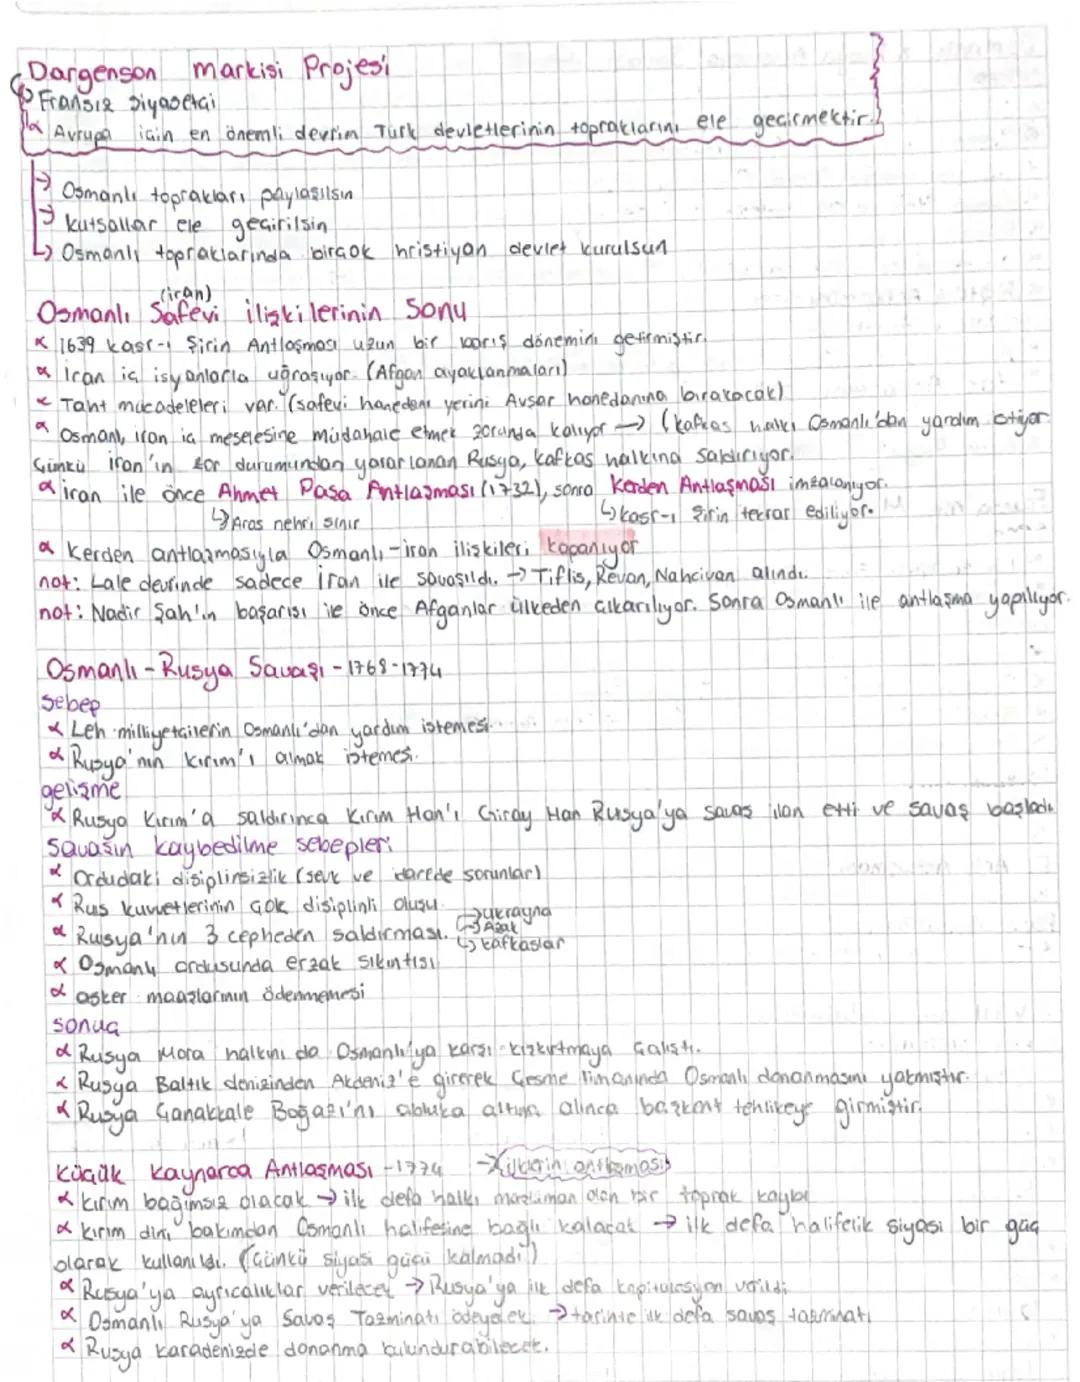 Dargenson markisi Projesi
Fransız siyasetçi
Avrupa için en önemli devrim Türk devletlerinin topraklarını ele geçirmektir.
→ Osmanlı toprakları paylaşılsın
→ kutsallar ele geçirilsin
→ Osmanlı topraklarında birçok hristiyan devlet kurulsun
(iran)
Osmanlı Safevi ilişkilerinin Sonu
1639 kasr-ı Şirin Antlaşması uzun bir barış dönemini getirmiştir.
iran iç isyanlarla uğraşıyor. (Afgan ayaklanmaları)
Taht mücadeleleri var. (safevi hanedanı yerini Avşar hanedanına bırakacak)
Osmanlı, iran iç meselesine müdahale etmek zorunda kalıyor → (kafkas halkı Osmanlı'dan yardım istiyor.
Çünkü iran'ın zor durumundan yararlanan Rusya, kafkas halkına saldırıyor.
iran ile önce Ahmet Paşa Antlaşması (1732), sonra Kerden Antlaşması imzalanıyor.
↳ Aras nehri sınır ↳ kasr-ı Şirin tekrar ediliyor.
Kerden antlaşmasıyla Osmanlı-iran ilişkileri kapanıyor
not: Lale devrinde sadece İran ile savaşıldı. → Tiflis, Revan, Nahcivan alındı.
not: Nadir Şah'ın başarısı ile önce Afganlar ülkeden çıkarılıyor. Sonra Osmanlı ile antlaşma yapılıyor.
Osmanlı - Rusya Savaşı - 1768-1774
sebep
Leh milliyetçilerin Osmanlı'dan yardım istemesi.
Rusya'nın kırım'ı almak istemesi.
gelişme
Rusya Kırım'a saldırınca Kırım Han'ı Giray Han Rusya'ya savaş ilan etti ve savaş başladı.
Savaşın kaybedilme sebepleri
Ordudaki disiplinsizlik (sevk ve idarede sorunlar)
Rus kuvvetlerinin çok disiplinli oluşu.
Rusya'nın 3 cepheden saldırması. → ukrayna
→ Azak
↳ kafkaslar
Osmanlı ordusunda erzak sıkıntısı
asker maaşlarının ödenmemesi
sonuç
Rusya Mora halkını da Osmanlı'ya karşı kışkırtmaya çalıştı.
Rusya Baltık denizinden Akdeniz'e girerek Çeşme limanında Osmanlı donanmasını yakmıştır.
Rusya Çanakkale Boğazı'nı abluka altına alınca başkent tehlikeye girmiştir.
Küçük kaynarca Antlaşması -1774 → ilklerin antlaşması
kırım bağımsız olacak → ilk defa halkı müslüman olan bir toprak kaybı
kırım dini bakımdan Osmanlı halifesine bağlı kalacak → ilk defa halifelik siyasi bir güç
olarak kullanıldı. (Çünkü siyasi gücü kalmadı)
Rusya'ya ayrıcalıklar verilecek → Rusya'ya ilk defa kapitülasyon verildi
Osmanlı Rusya'ya Savaş Tazminatı ödeyecek. → tarihte ilk defa savaş tazminatı
Rusya karadenizde donanma bulundurabilecek.